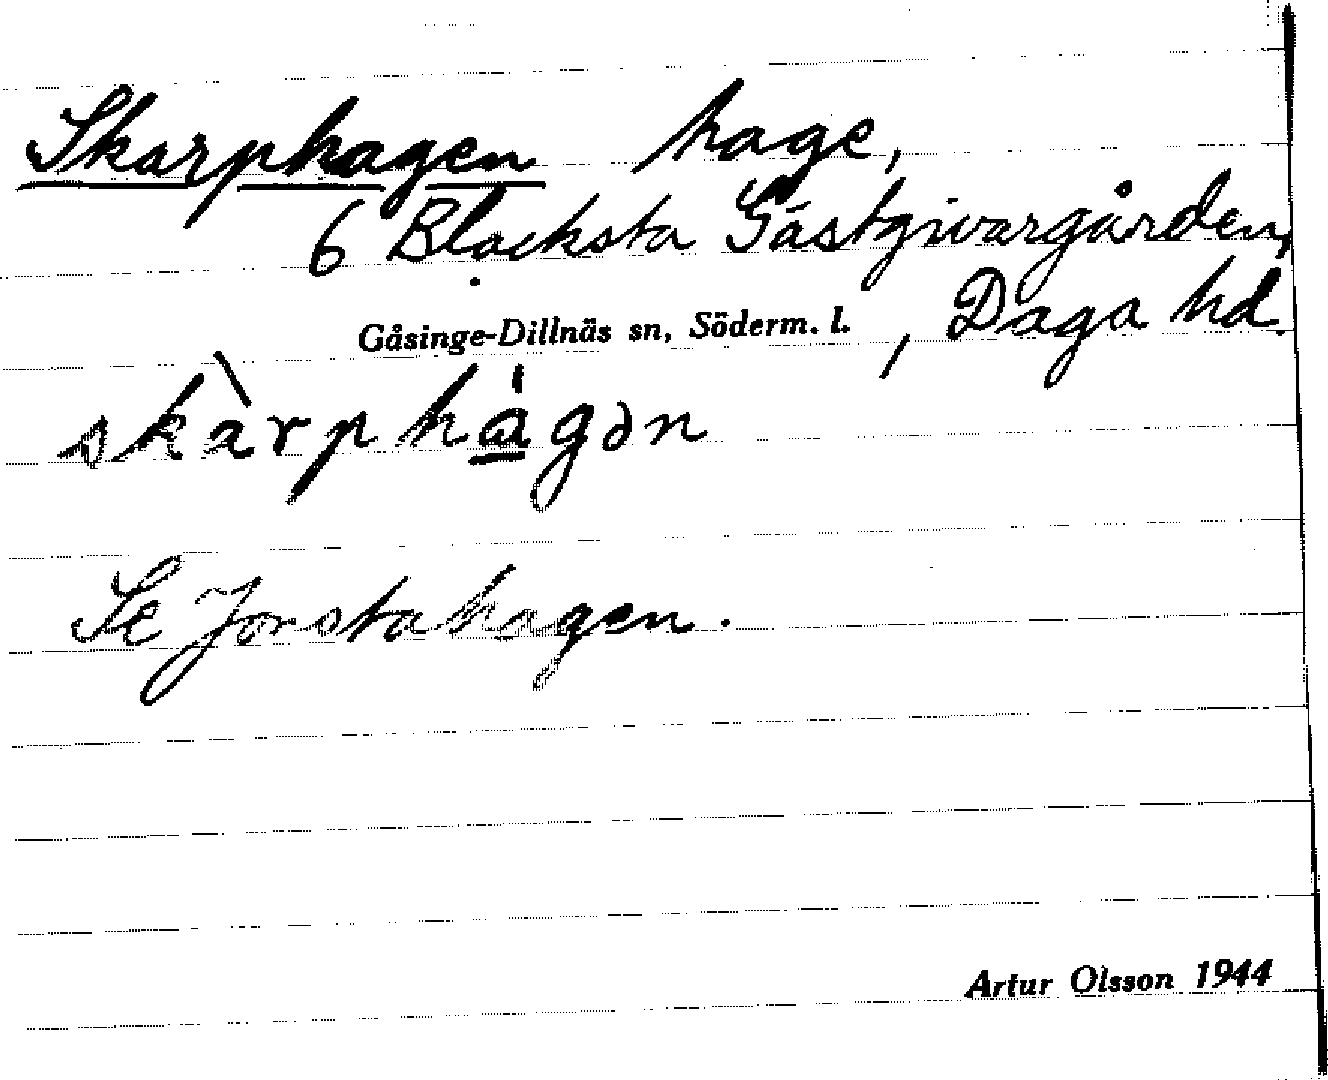 Skarphagen hage,
6 Blacksta Gästgivargården,
Gåsinge-Dillnäs sn, Söderm. l. , Daga hd.
skàrphágən
Se Jorstahagen.
Artur Olsson 1944